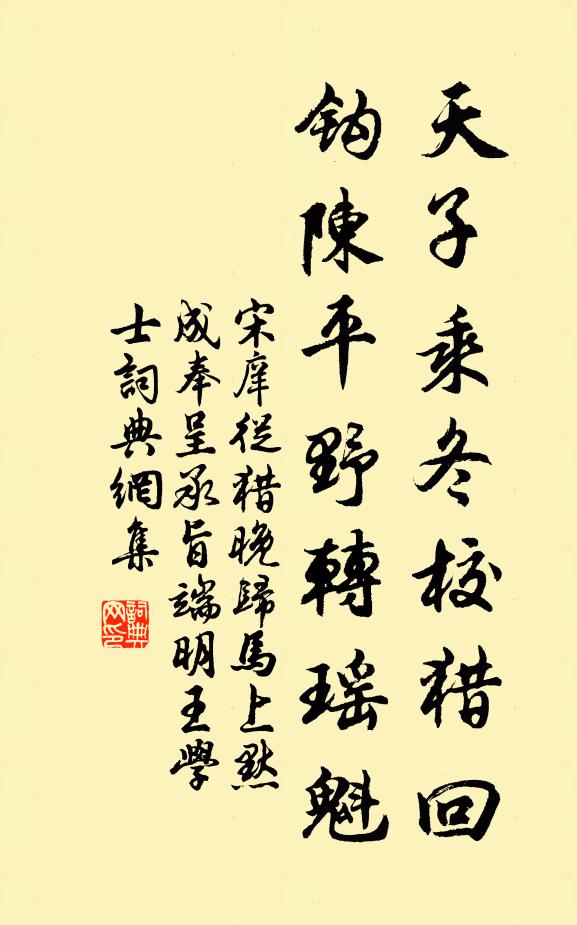 天子乘冬校猎回
钩陳平野轉瑶魁
宋庠從猎晚歸馬上默
成奉呈承旨端明王學
士詞典網集
詞典
网印